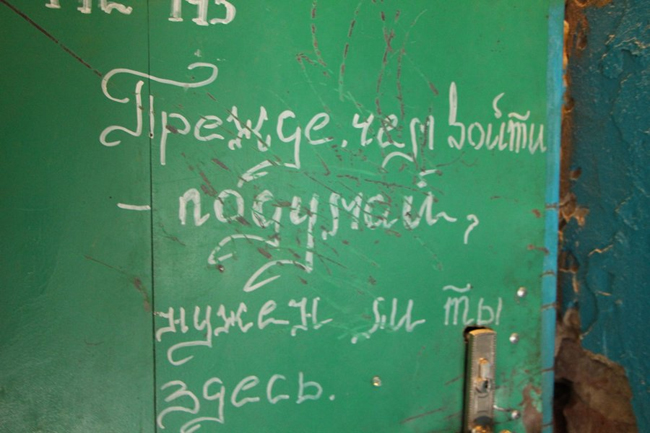 Прежде, чем войти
- подумай,
нужен ли ты
здесь.